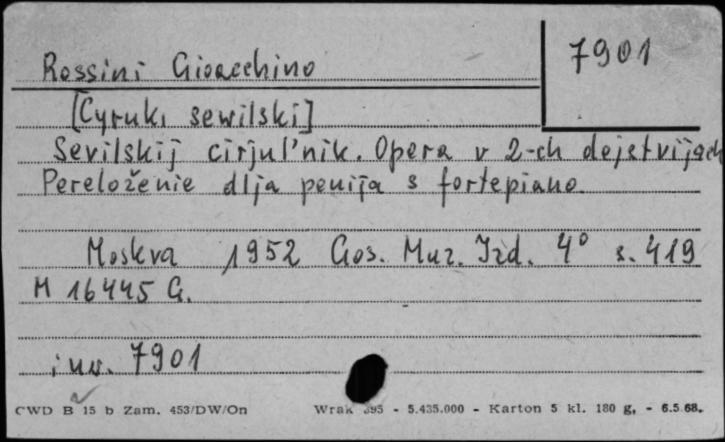 Rossini Gioacchino
7901
[Cyruk, sewilski]
Sevilskij cirjul'nik. Opera v 2-ch dejstvijach
Pereloženie dlja penija s fortepiano.
Moskva 1952 Gos. Muz. Izd. 4° s. 419
M 16445 G.
inw. 7901
CWD B 15 b Zam. 453/DW/On Wrak 595 - 5.435.000 - Karton 5 kl. 180 g, - 6.5.68.